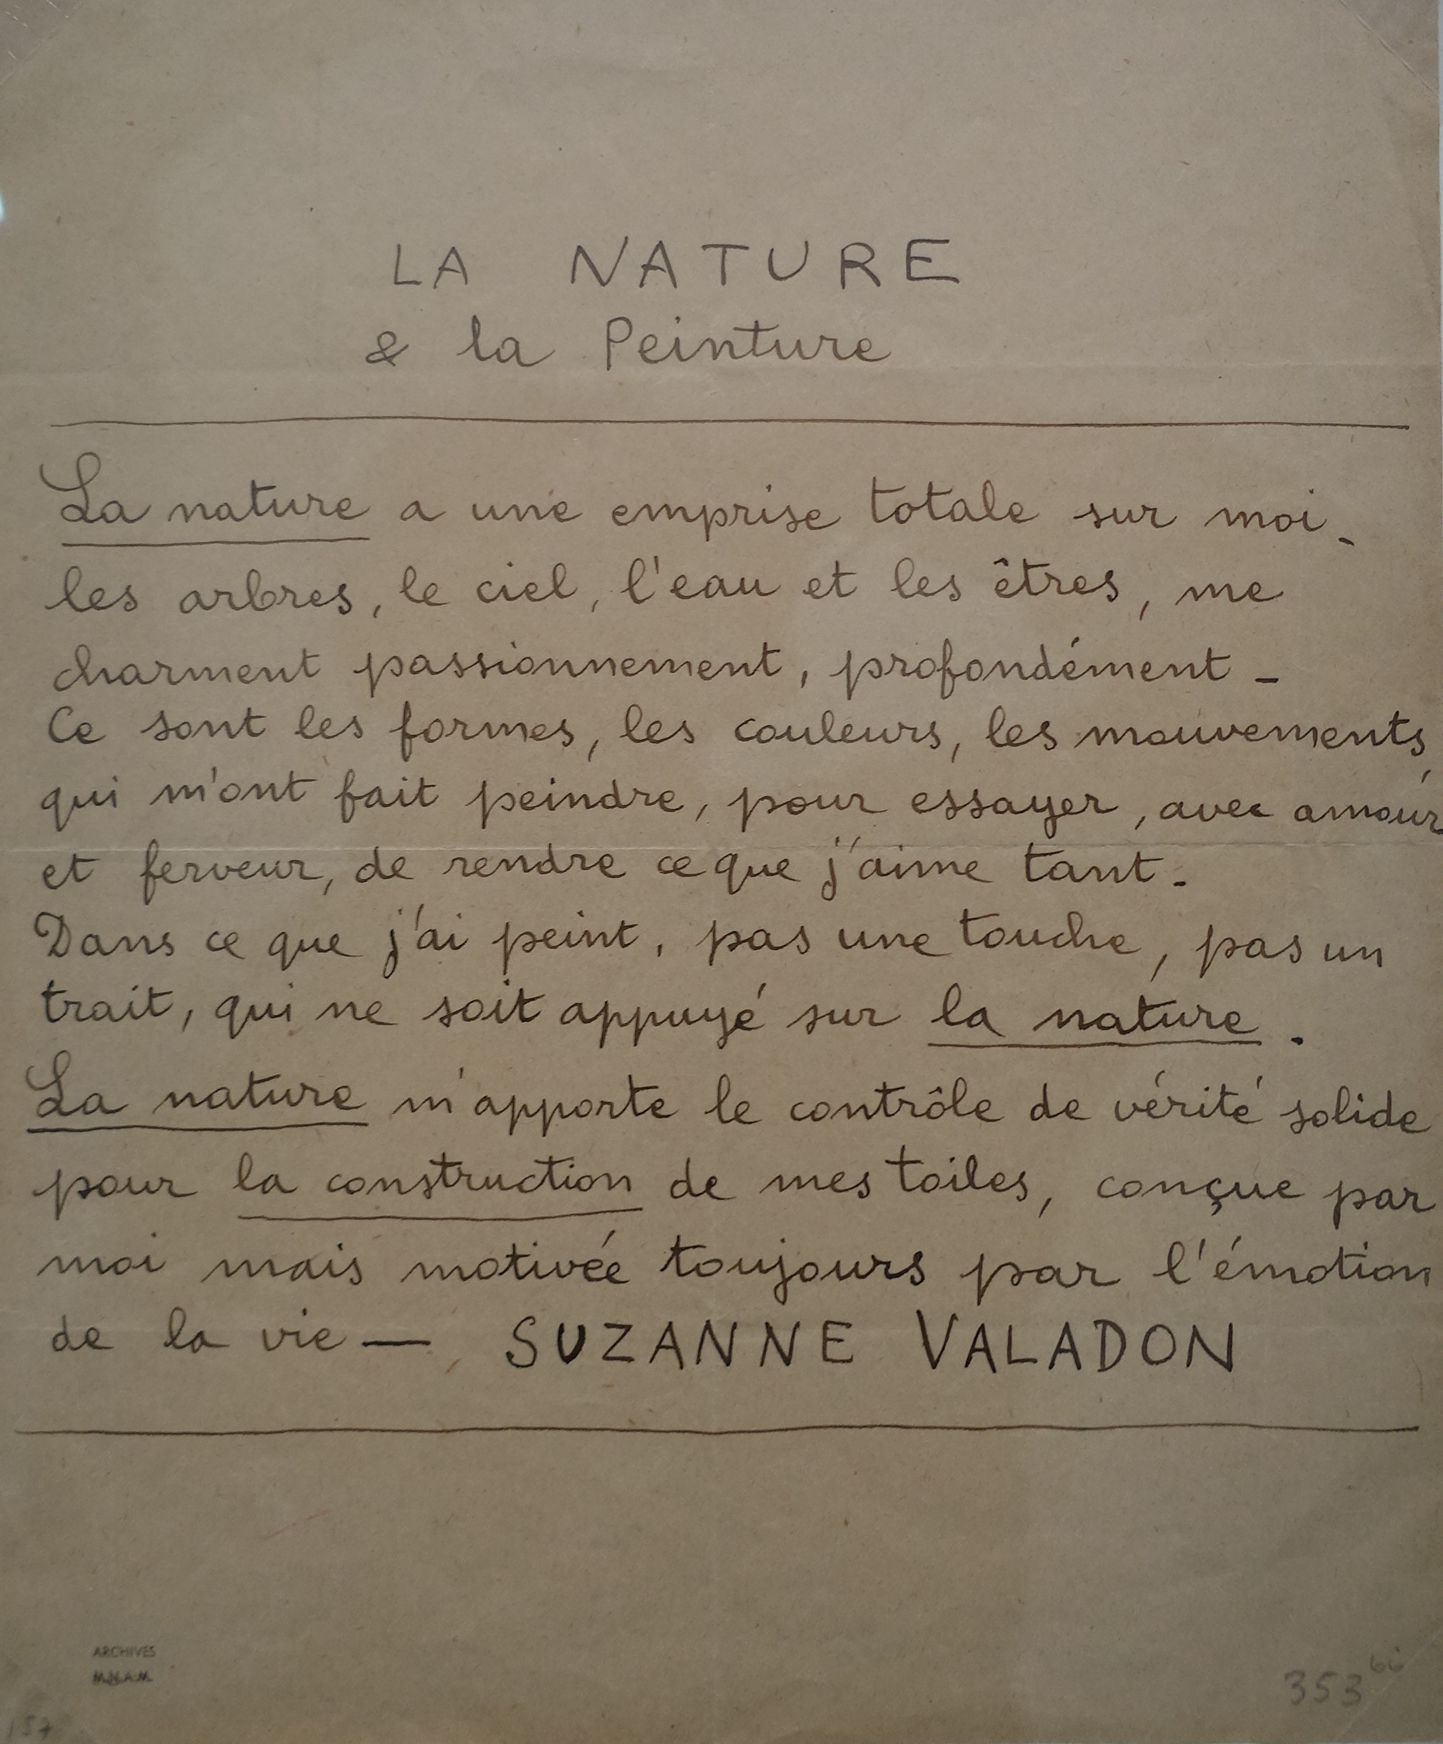 LA NATURE
& la Peinture
La nature a une emprise totale sur moi.
les arbres, le ciel, l'eau et les êtres, me
charment passionnement, profondément -
Ce sont les formes, les couleurs, les mouvements,
qui m'ont fait peindre, pour essayer, avec amour
et ferveur, de rendre ce que j'aime tant.
Dans ce que j'ai peint, pas une touche, pas un
trait, qui ne soit appuyé sur la nature.
La nature m'apporte le contrôle de vérité solide
pour la construction de mes toiles, conçue par
moi mais motivée toujours par l'émotion
de la vie — SUZANNE VALADON
ARCHIVES
M.N.A.M.
353